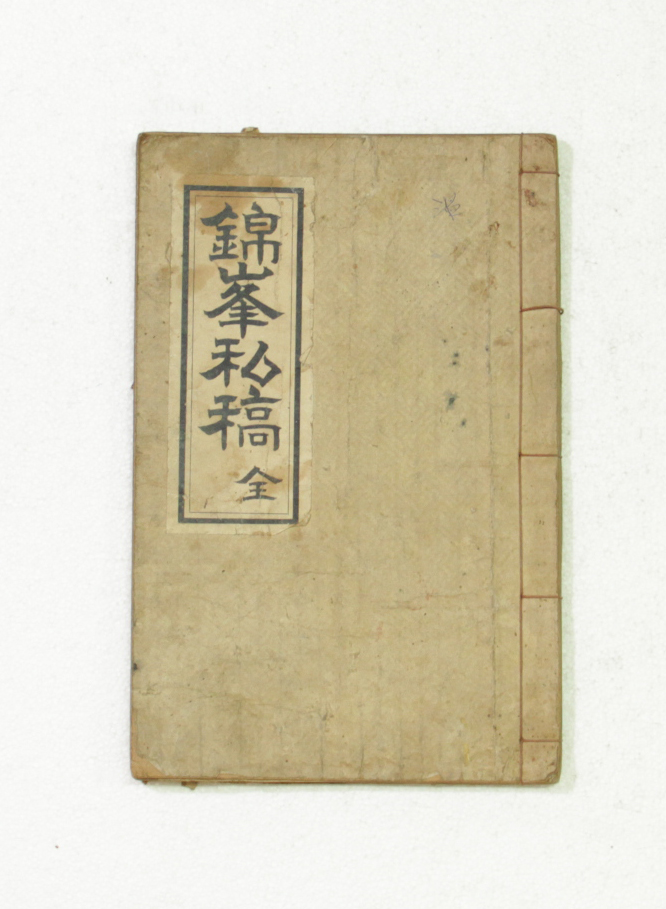 錦峯私稿 全